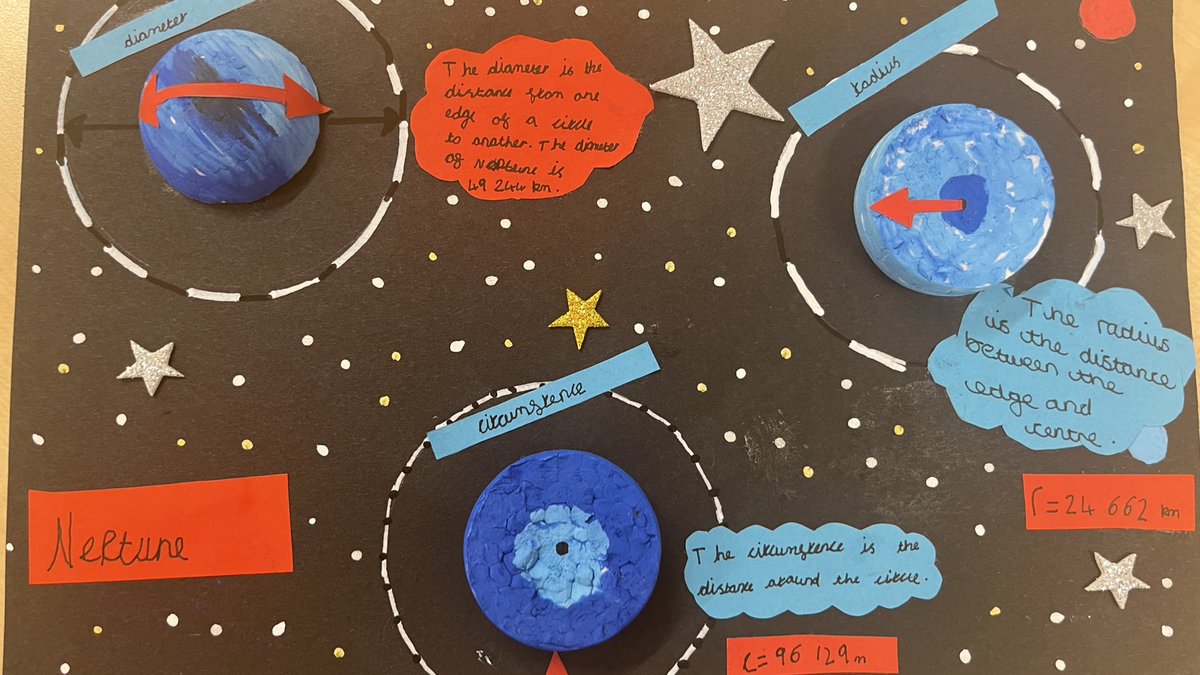 diameter
The diameter is the
distance from one
edge of a circle
to another. The diameter
of Neptune is
49 244 km.
radius
The radius
is the distance
between the
edge and
centre.
r=24 662 km
circumference
The circumference is the
distance around the circle.
C=96 129m
Neptune